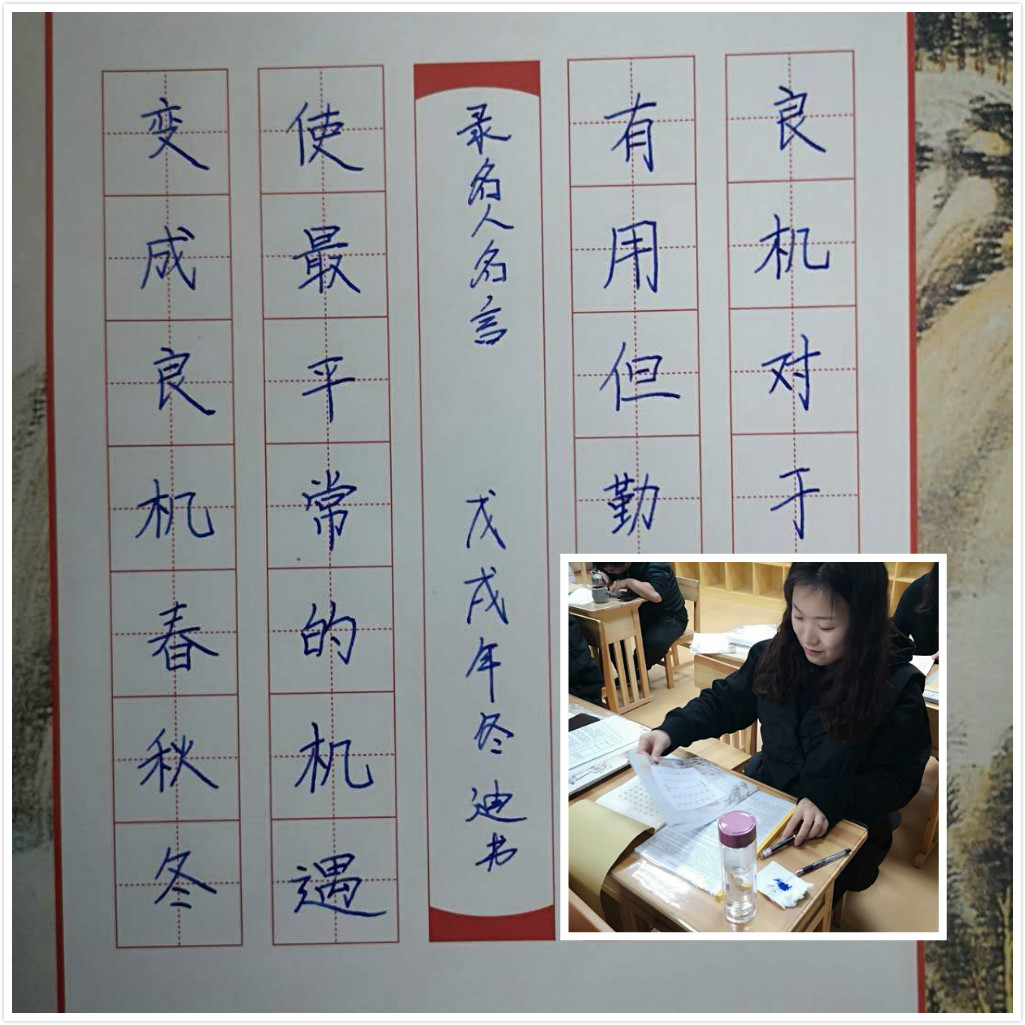 良机对于
有用但勤
录名人名言 戊戌年冬迪书
使最平常的机遇
变成良机春秋冬